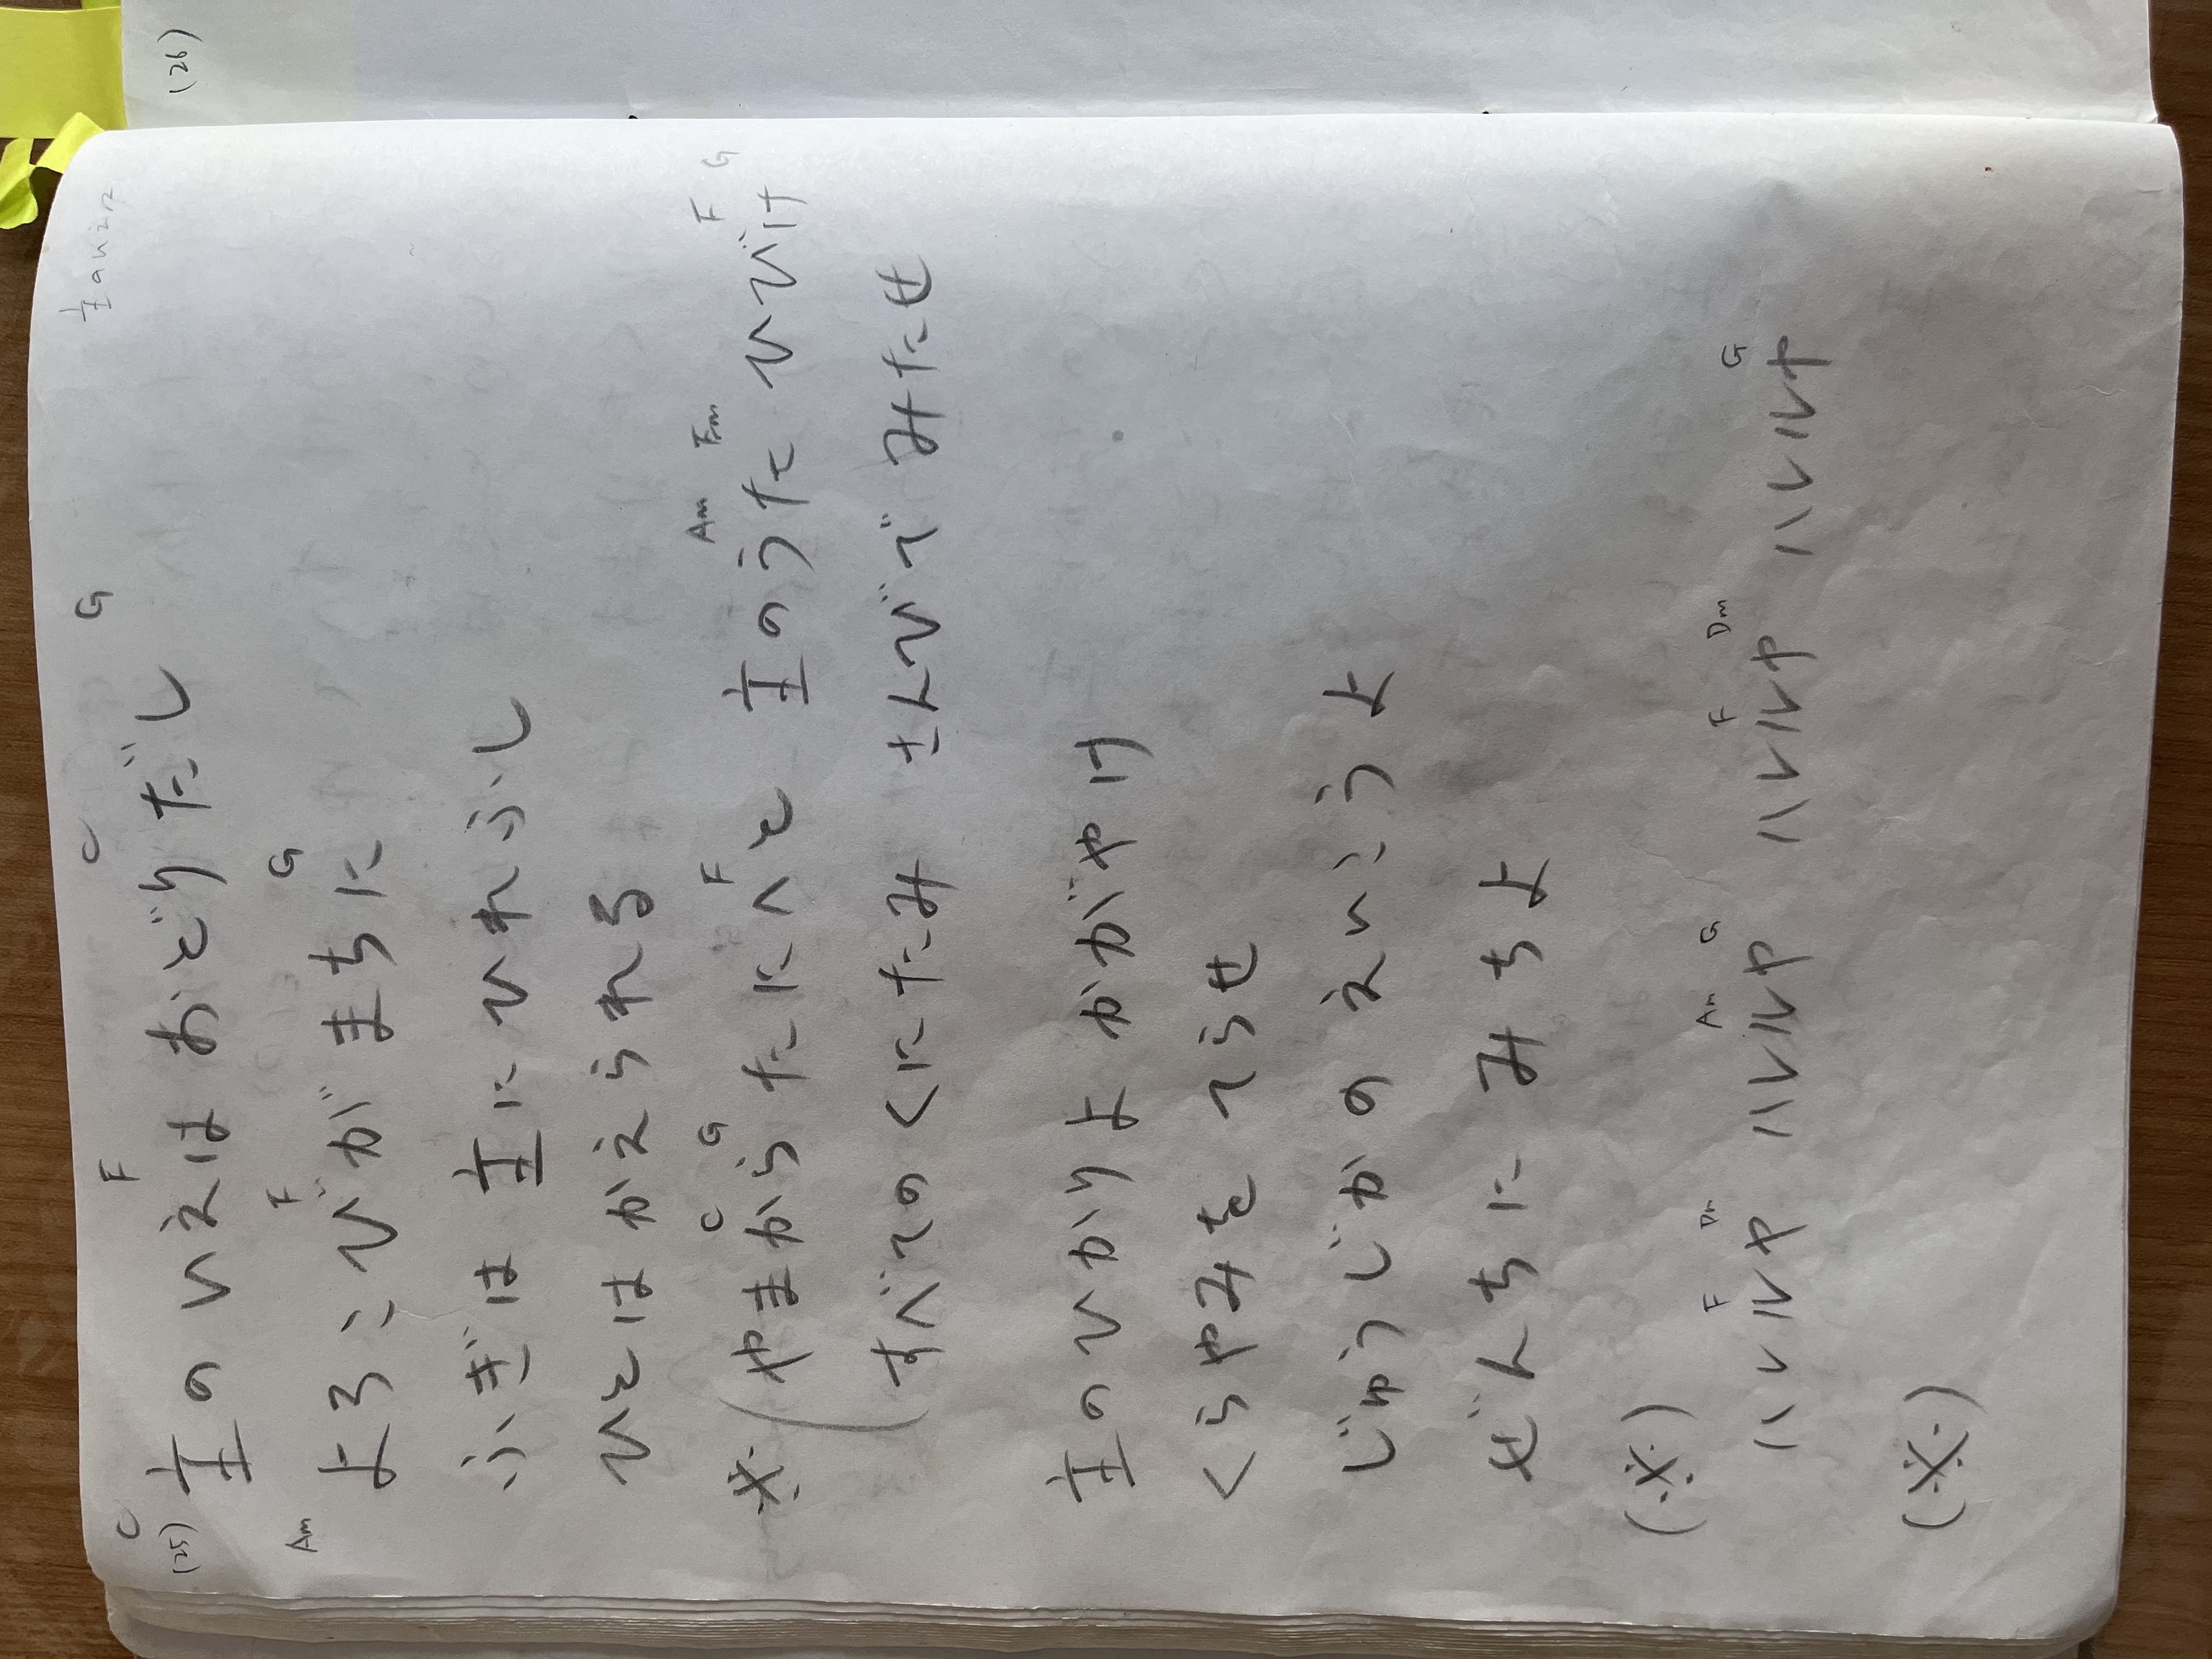 (26)
C F C G
(25) 主のいえは おどりだし
Am F G
よろこびが まちに
ふぎは 主に ひれふし
ひとは かえられる
C G F Am Fm F G
※(やまから たにへと 主のうた ひびけ
すべての くにたみ さんびで みたせ
主の ひかりよ かがやけ
くらやみを てらせ
じゅうじかの えいこうよ
ぜんちに みちよ
(※)
F Dm Am G F Dm G
ハレルヤ ハレルヤ ハレルヤ ハレルヤ
(※)